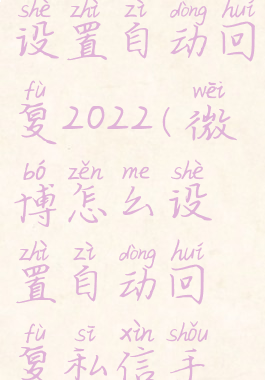 shè zhì zì dòng huí
设置自动回
fù wēi
复2022(微
bó zěn me shè
博怎么设
zhì zì dòng huí
置自动回
fù sī xìn shǒu
复私信手